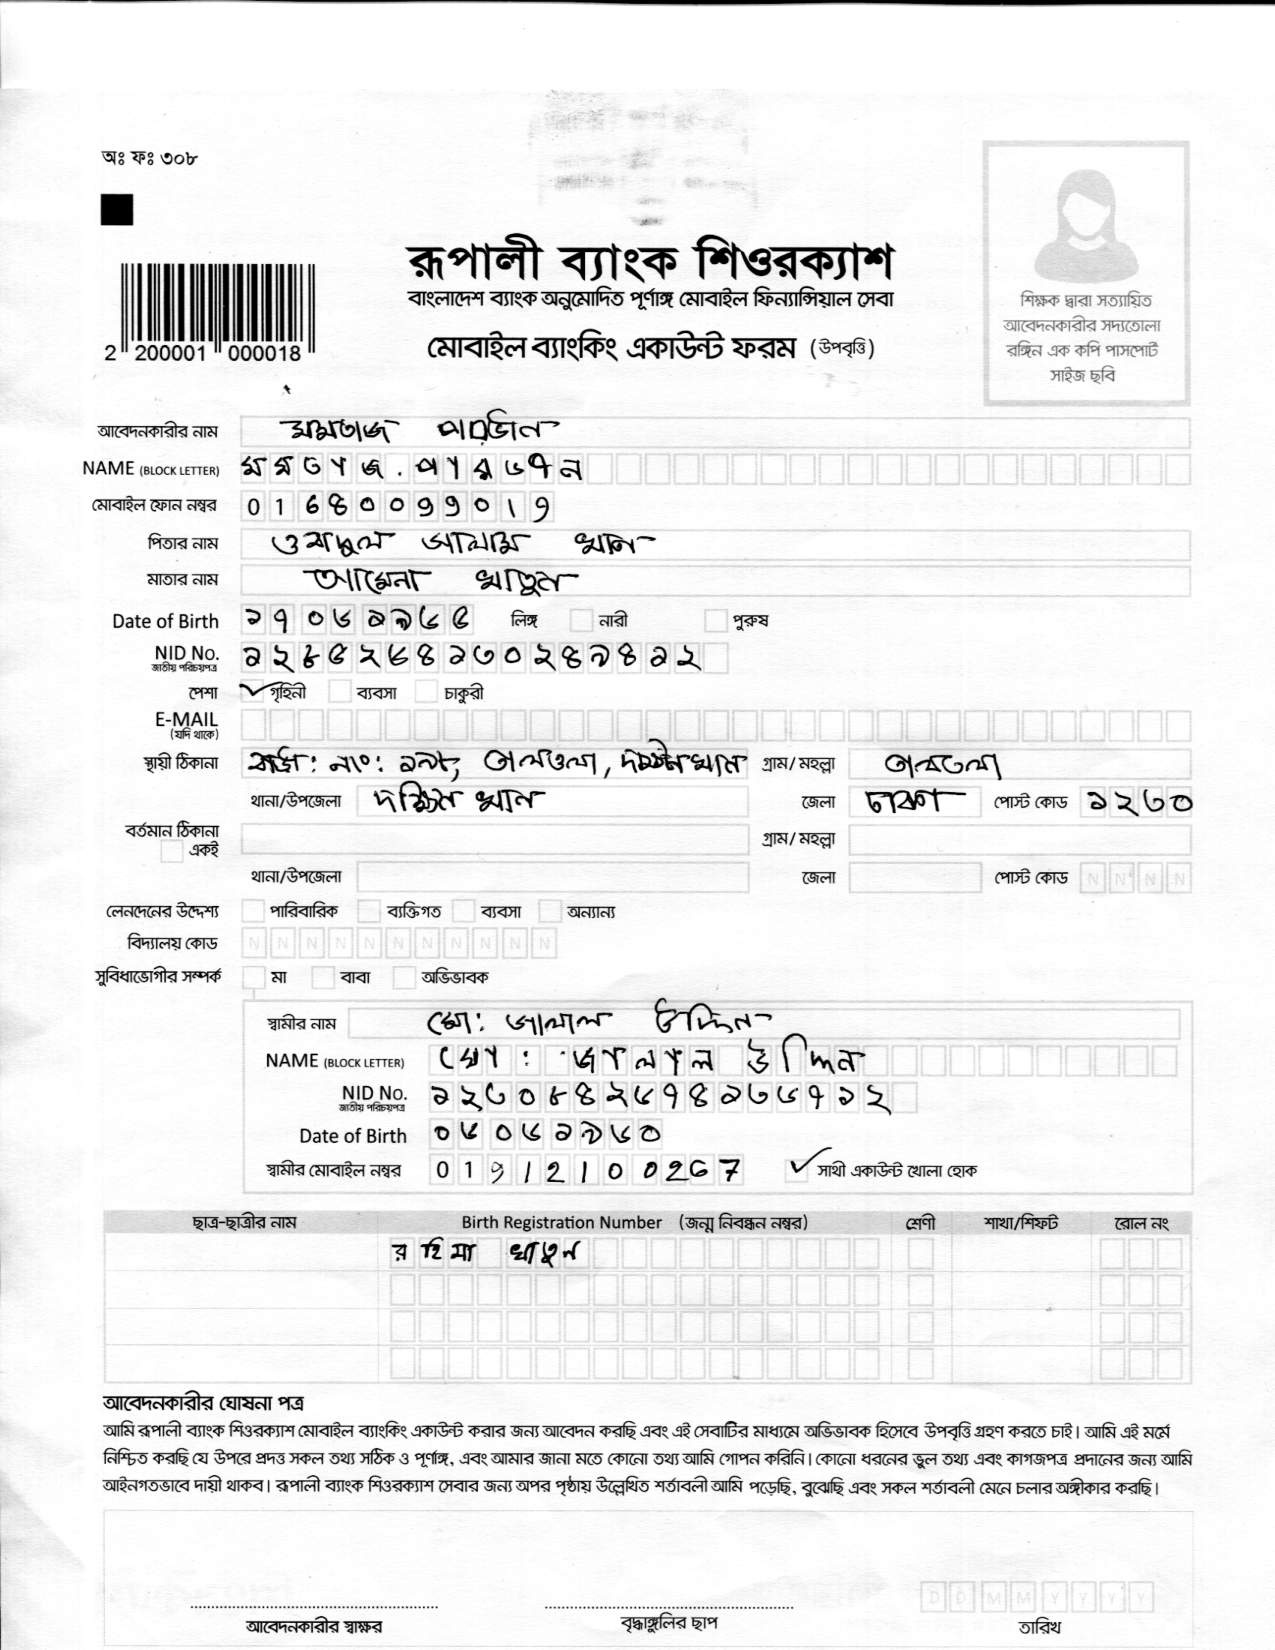 অঃ ফঃ ৩০৮
2 200001 000018
রূপালী ব্যাংক শিওরক্যাশ
বাংলাদেশ ব্যাংক অনুমোদিত পূর্ণাঙ্গ মোবাইল ফিন্যান্সিয়াল সেবা
মোবাইল ব্যাংকিং একাউন্ট ফরম (উপবৃত্তি)
শিক্ষক দ্বারা সত্যায়িত
আবেদনকারীর সদ্যতোলা
রঙ্গিন এক কপি পাসপোর্ট
সাইজ ছবি
আবেদনকারীর নাম মমতাজ পারভীন
NAME (BLOCK LETTER) মমতাজ. পারভীন
মোবাইল ফোন নম্বর 0168
পিতার নাম আলাম খান
মাতার নাম আমেনা খাতুন
Date of Birth ১৭০৬১৯৬৫ লিঙ্গ নারী পুরুষ
NID No.
জাতীয় পরিচয়পত্র
পেশা গৃহিনী ব্যবসা চাকুরী
E-MAIL
(যদি থাকে)
স্থায়ী ঠিকানা নাং: তালতলা, গ্রাম/ মহল্লা তালতলা
থানা/উপজেলা দক্ষিন খান জেলা ঢাকা পোস্ট কোড ১২৩০
বর্তমান ঠিকানা গ্রাম/ মহল্লা
একই
থানা/উপজেলা জেলা পোস্ট কোড N N N N
লেনদেনের উদ্দেশ্য পারিবারিক ব্যক্তিগত ব্যবসা অন্যান্য
বিদ্যালয় কোড N N N N N N N N N N N
সুবিধাভোগীর সম্পর্ক মা বাবা অভিভাবক
স্বামীর নাম মো: জালাল উদ্দিন
NAME (BLOCK LETTER) মো: জালাল উদ্দিন
NID No. ১২৩০৮৪২৬৭৪১৩৬৭১২
জাতীয় পরিচয়পত্র
Date of Birth ০৬০৬১৯৬০
স্বামীর মোবাইল নম্বর 01912100267 সাথী একাউন্ট খোলা হোক
ছাত্র-ছাত্রীর নাম Birth Registration Number (জন্ম নিবন্ধন নম্বর) শ্রেণী শাখা/শিফট রোল নং
রহিমা খাতুন
আবেদনকারীর ঘোষনা পত্র
আমি রূপালী ব্যাংক শিওরক্যাশ মোবাইল ব্যাংকিং একাউন্ট করার জন্য আবেদন করছি এবং এই সেবাটির মাধ্যমে অভিভাবক হিসেবে উপবৃত্তি গ্রহণ করতে চাই। আমি এই মর্মে
নিশ্চিত করছি যে উপরে প্রদত্ত সকল তথ্য সঠিক ও পূর্ণাঙ্গ, এবং আমার জানা মতে কোনো তথ্য আমি গোপন করিনি। কোনো ধরনের ভুল তথ্য এবং কাগজপত্র প্রদানের জন্য আমি
আইনগতভাবে দায়ী থাকব। রূপালী ব্যাংক শিওরক্যাশ সেবার জন্য অপর পৃষ্ঠায় উল্লেখিত শর্তাবলী আমি পড়েছি, বুঝেছি এবং সকল শর্তাবলী মেনে চলার অঙ্গীকার করছি।
D D M M Y Y Y Y
আবেদনকারীর স্বাক্ষর বৃদ্ধাঙ্গুলির ছাপ তারিখ